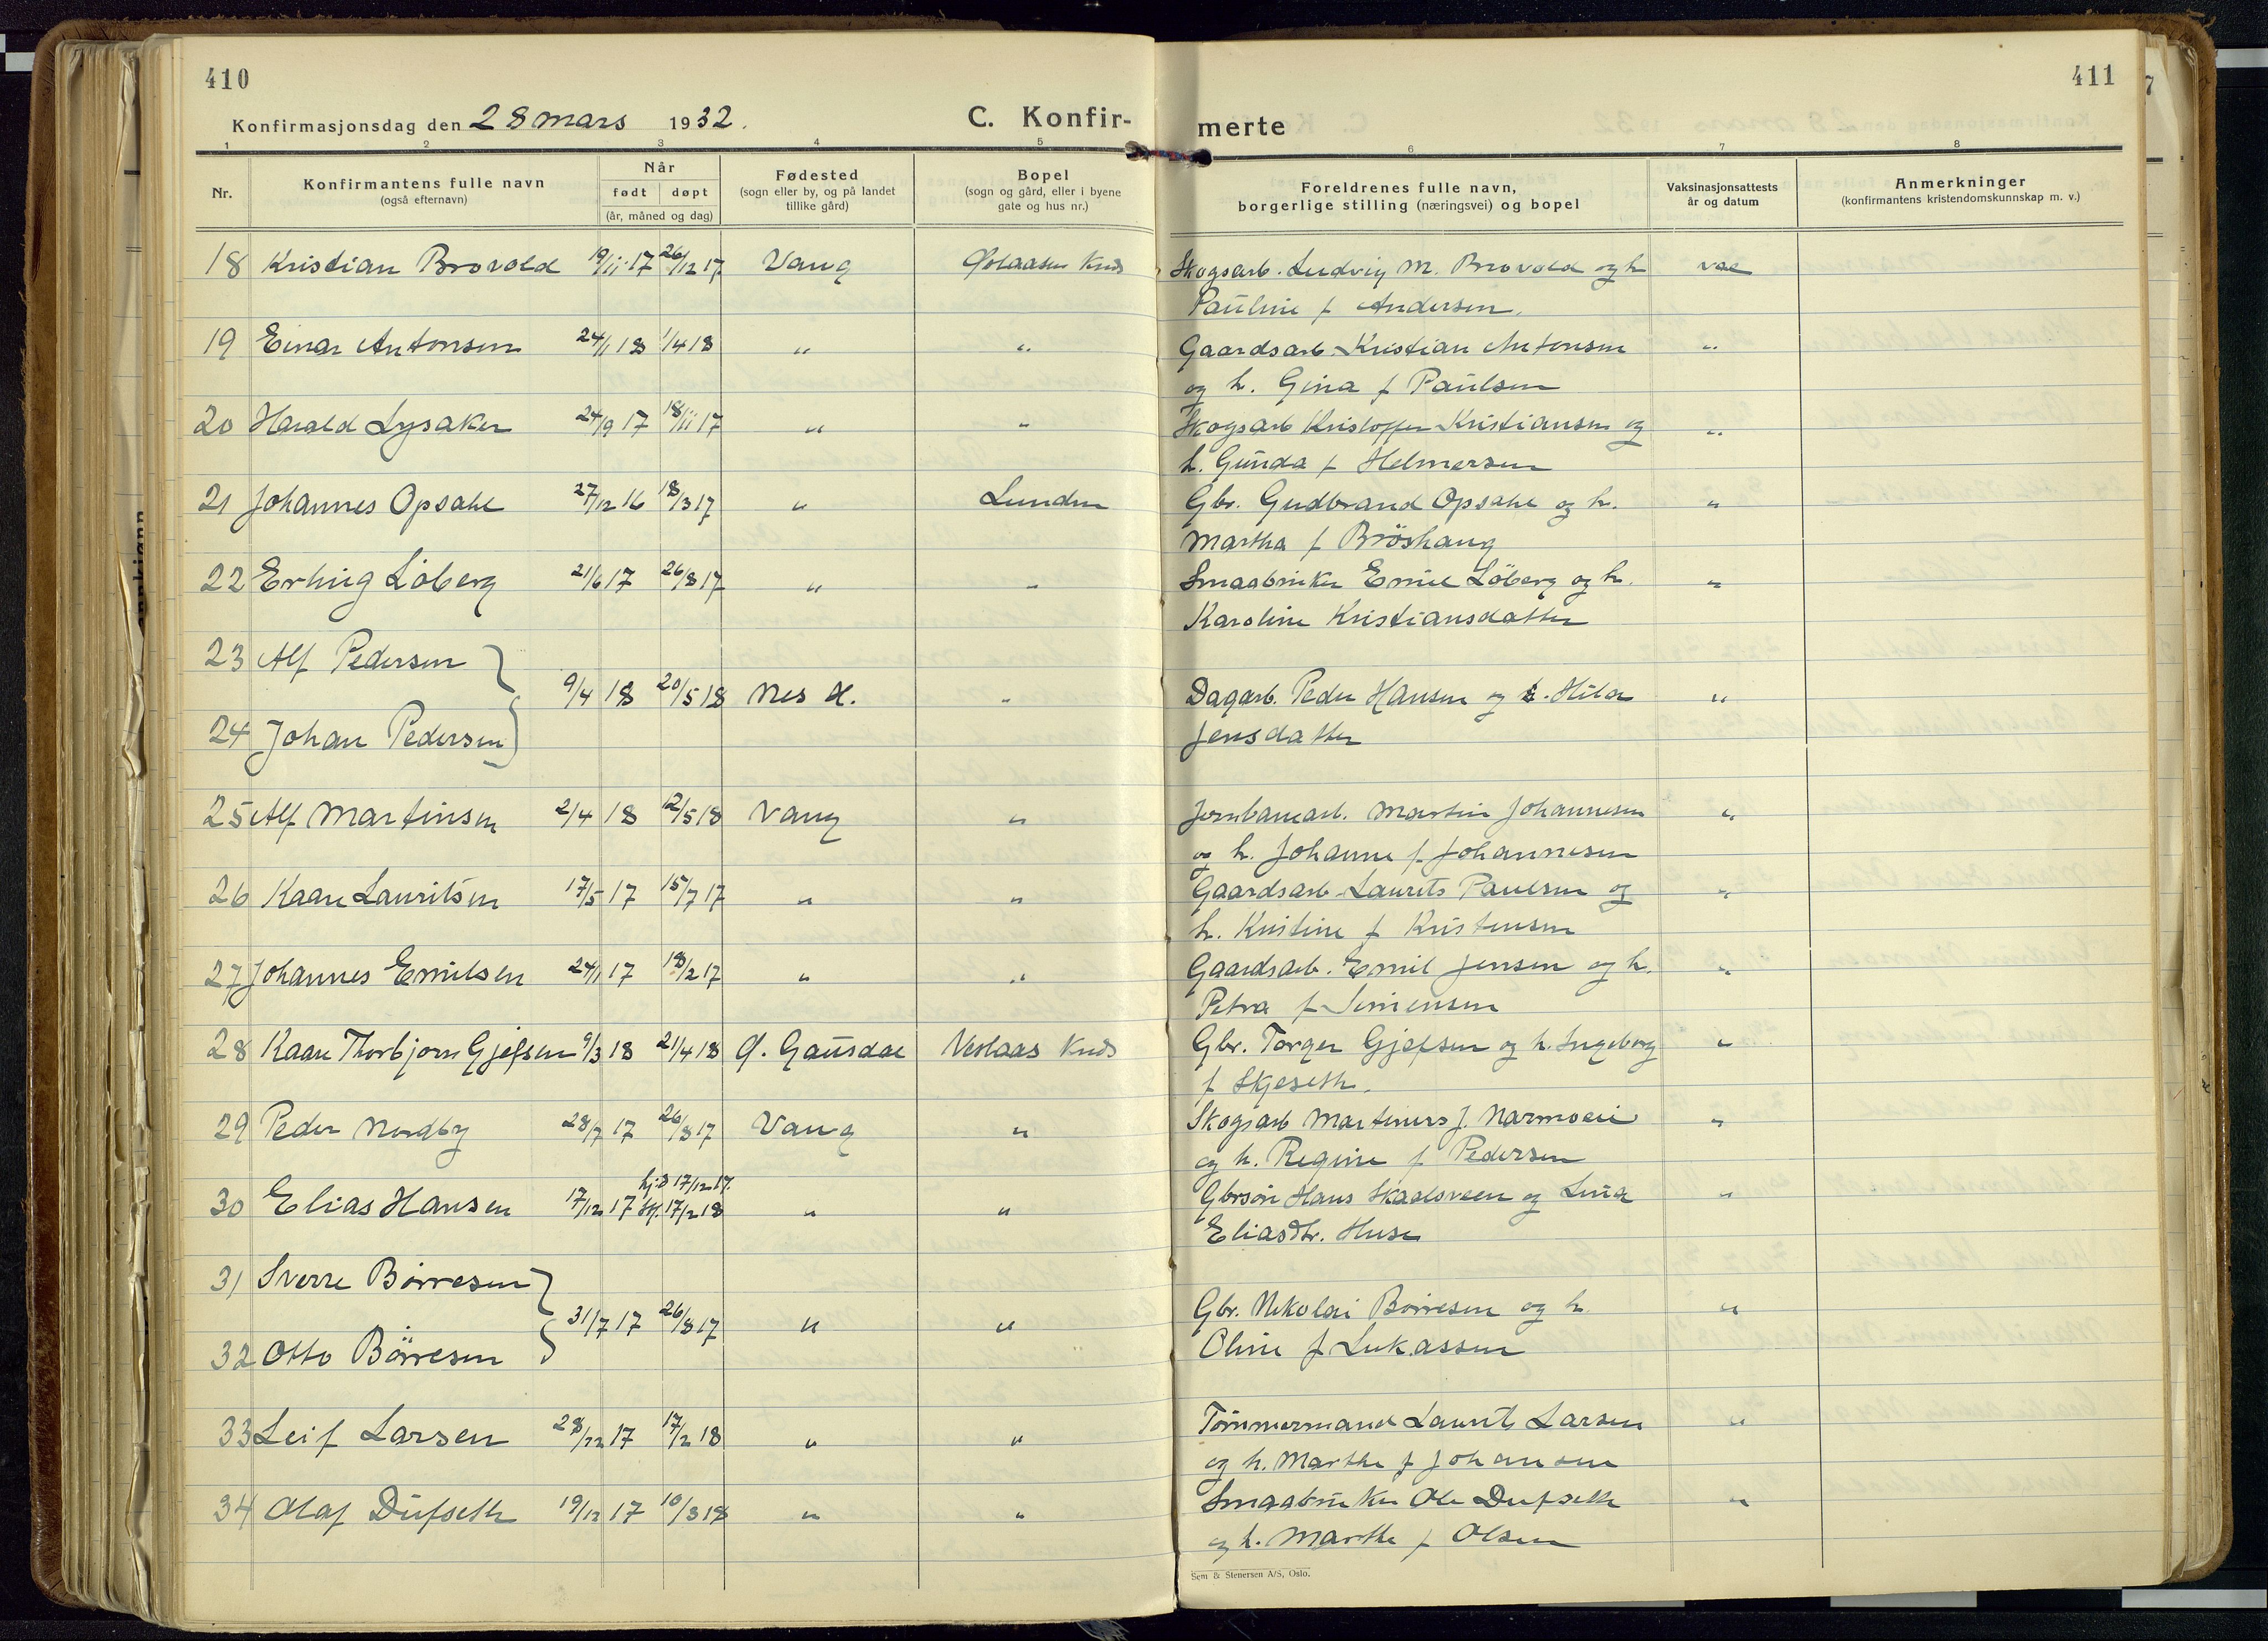 410
Konfirmasjonsdag den 28 mars 1932.
C. Konfir-
1 2 3 4 5
Nr.
Konfirmantens fulle navn
(også efternavn)
Når
født døpt
(år, måned og dag)
Fødested
(sogn eller by, og på landet
tillike gård)
Bopel
(sogn og gård, eller i byene
gate og hus nr.)
18 Kristian Brovold 19/11 17 26/12 17 Vang Kuds
19 Einar Antonsen 24/1 18 1/4 18 " "
20 Harald Lysaker 24/9 17 18/11 17 " "
21 Johannes Opsahl 27/12 16 18/3 17 " Lunden
22 Erling Löberg 21/6 17 26/8 17 " "
23 Alf Pedersen
9/4 18 20/5 18 Nes H. "
24 Johan Pedersen
25 Alf Martinsen 2/4 18 12/5 18 Vang "
26 Kaare Lauritsen 17/5 17 15/7 17 " "
27 Johannes Emilsen 24/1 17 18/2 17 " "
28 Kaare Thorbjorn Gjefsen 9/3 18 21/4 18 Ø. Gausdal Veslaas Kuds
29 Peder Nordby 28/7 17 26/8 17 Vang "
hj.d 17/12 17.
30 Elias Hansen 17/12 17 Stf. 17/2 18 " "
31 Sverre Börresen
31/7 17 26/8 17 " "
32 Otto Börresen
33 Leif Larsen 28/12 17 17/2 18 " "
34 Olaf Dufseth 19/12 17 10/3 18 " "
411
merte
6 7 8
Foreldrenes fulle navn,
borgerlige stilling (næringsvei) og bopel
Vaksinasjonsattests
år og datum
Anmerkninger
(konfirmantens kristendomskunnskap m. v.)
Skogsarb. Ludvig M. Brovold og h vac
Pauline f Andersen.
Gaardsarb. Kristian Antonsen "
og h. Gina f Paulsen
Skogsarb Kristoffer Kristiansen og "
h. Gunda f Helmersen
Gbr. Gudbrand Opsahl og h. "
Martha f Bröshaug
Smaabruker Emil Löberg og h. "
Karoline Kristiansdatter
Dagarb. Peder Hansen og h. Hilda "
Jensdatter
Jernbanearb. Martin Johannesen "
og h. Johanne f Johannesen
Gaardsarb. Laurits Paulsen og "
h. Kristine f Kristensen
Gaardsarb. Emil Jensen og h. "
Petra f Simensen
Gbr. Torger Gjefsen og h. Ingeborg "
f Skjeseth.
Skogsarb Martinius J. Narmoen "
og h. Regine f Pedersen
Gbrsön Hans Skadsveen og Lina "
Eliasdtr. Huse
Gbr. Nikolai Börresen og h. "
Oline f Lukassen
Tömmermand Laurits Larsen "
og h. Marthe f Johansen
Smaabruker Ole Dufseth "
og h. Marthe f Olsen
Sem & Stenersen A/S, Oslo.